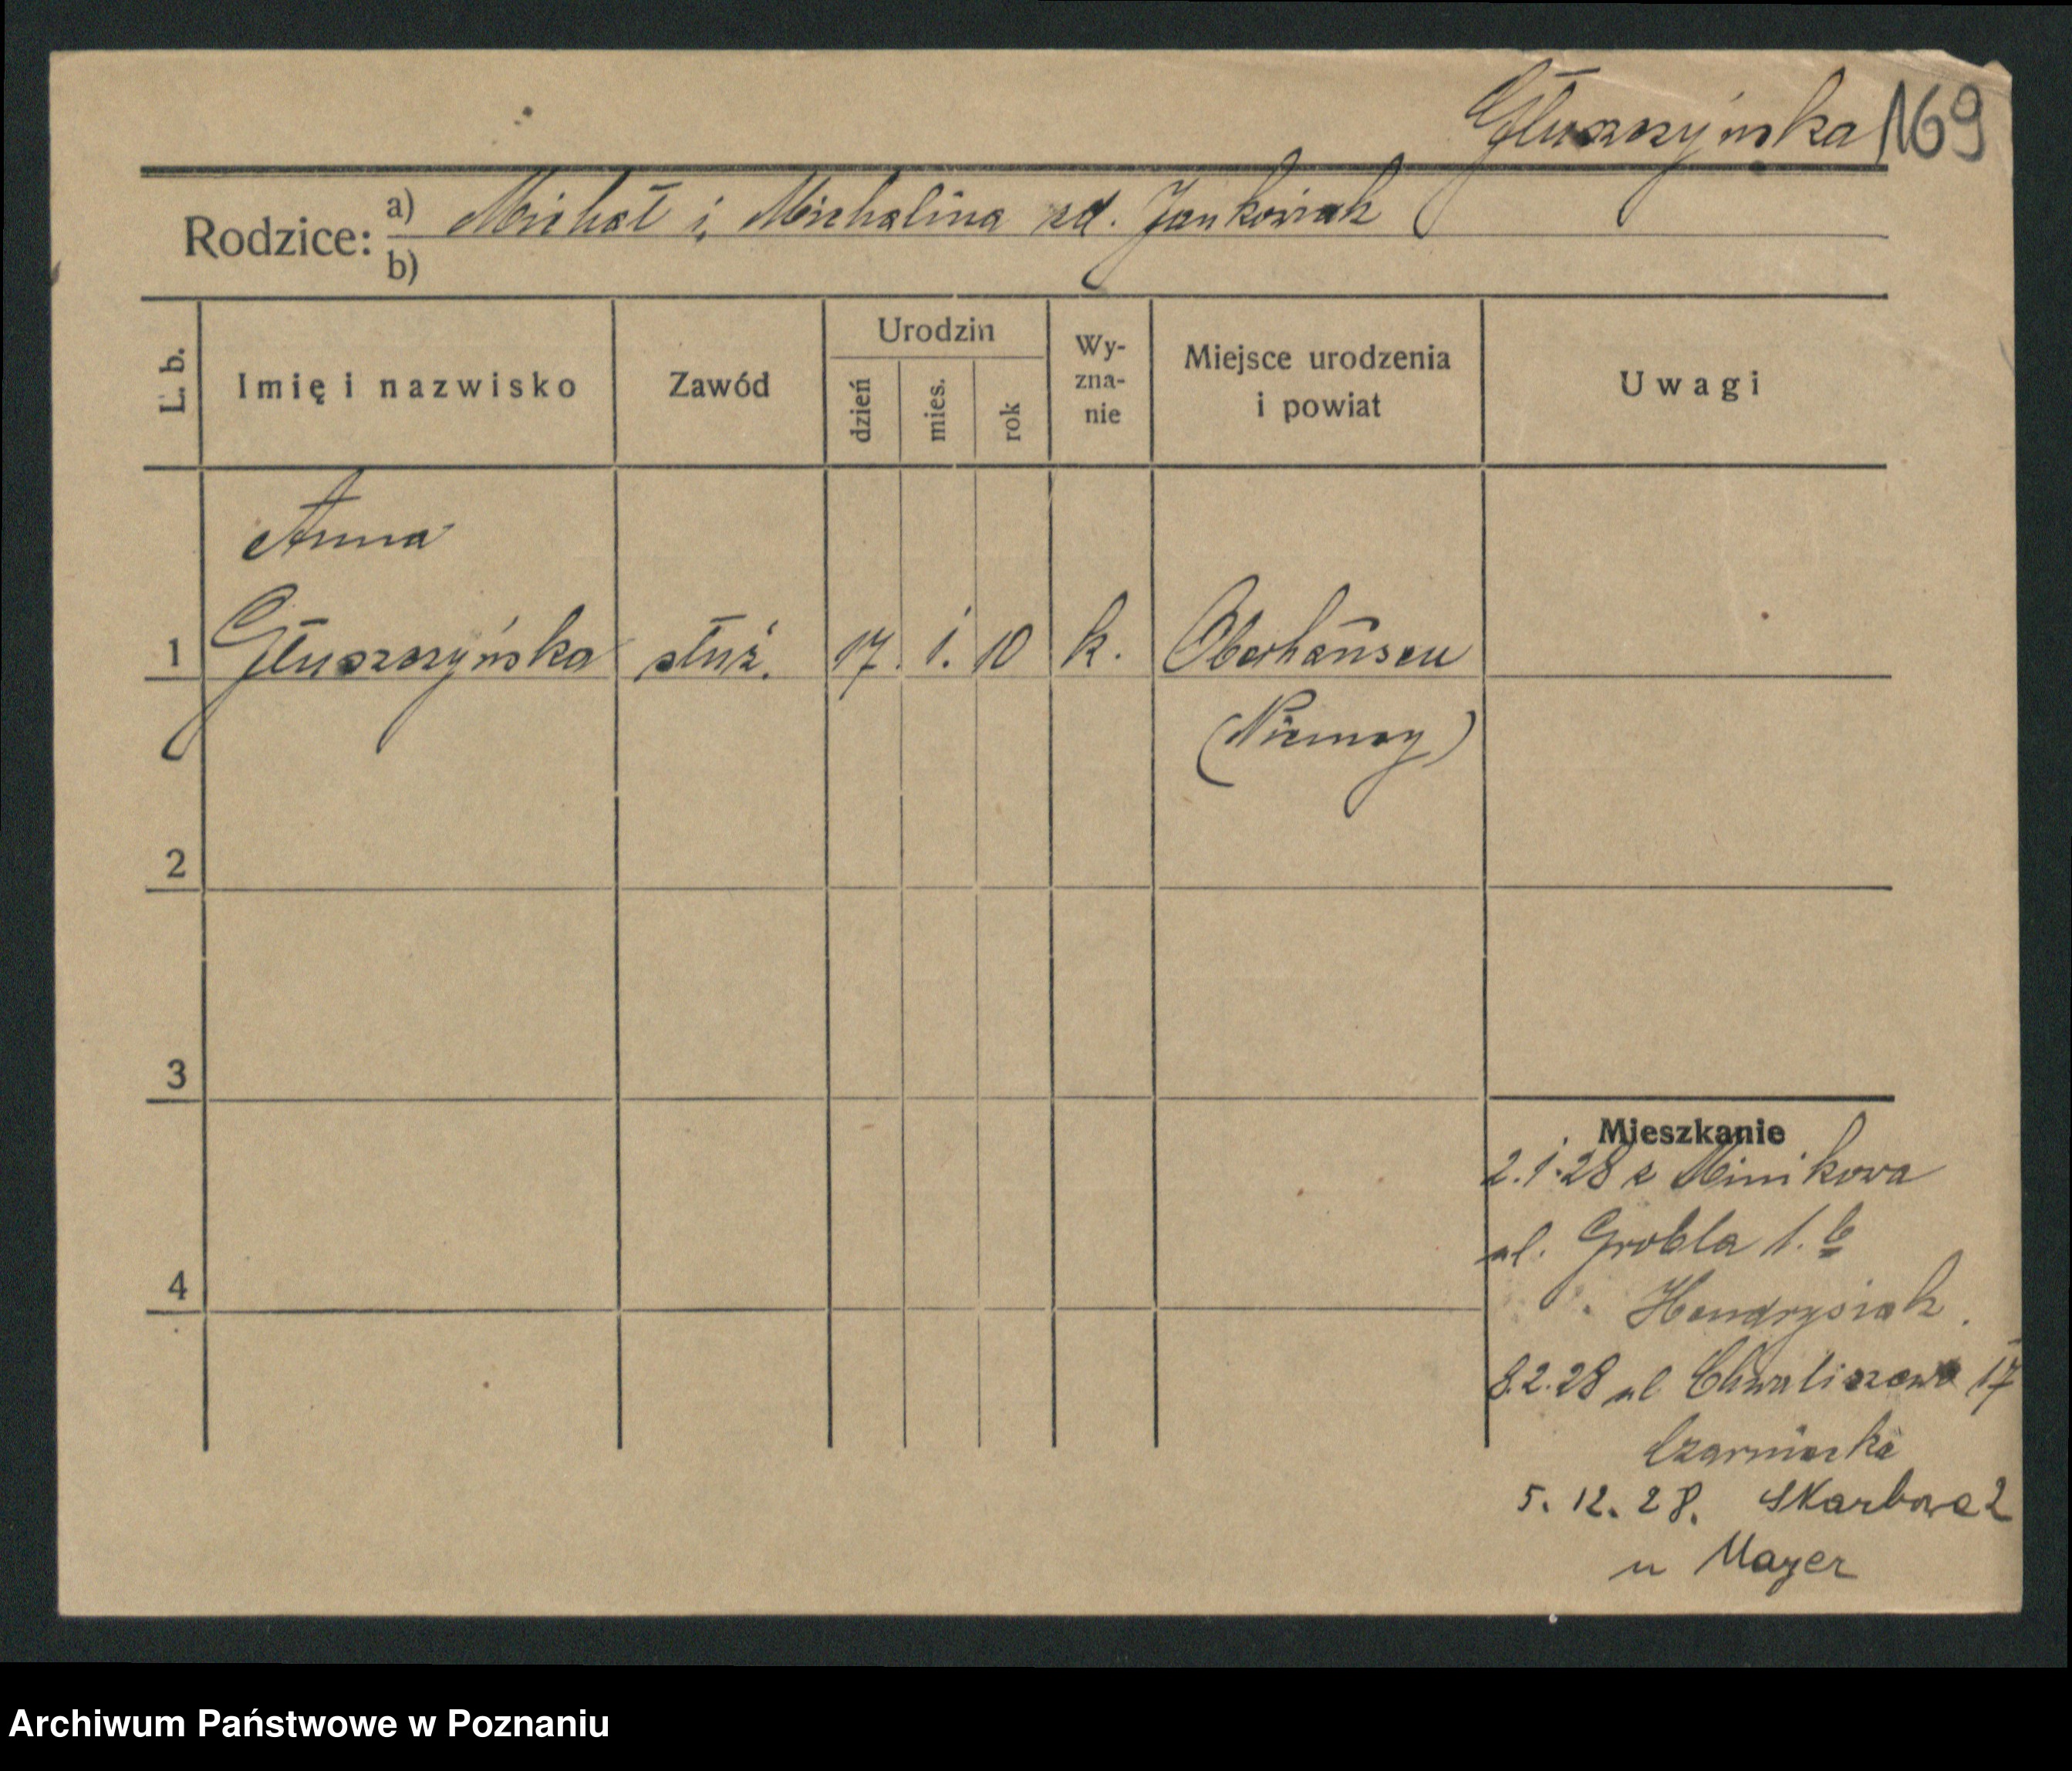 Głuszczyńska 169
Rodzice: a) Michał i Michalina zd. Jankowiak
b)
L. b.
Imię i nazwisko
Zawód
Urodzin
dzień
mies.
rok
Wy-
zna-
nie
Miejsce urodzenia
i powiat
Uwagi
Anna
1 Głuszczyńska służ. 17. 1. 10 k. Oberhausen
(Niemcy)
2
3
4
Mieszkanie
2.1.28 z Minikowa
ul. Grobla 1.
Hendrysiak.
8.2.28 ul Chwaliszewo 17
Czarniecka
5. 12. 28. Skarbowa 2
u Mayer
Archiwum Państwowe w Poznaniu